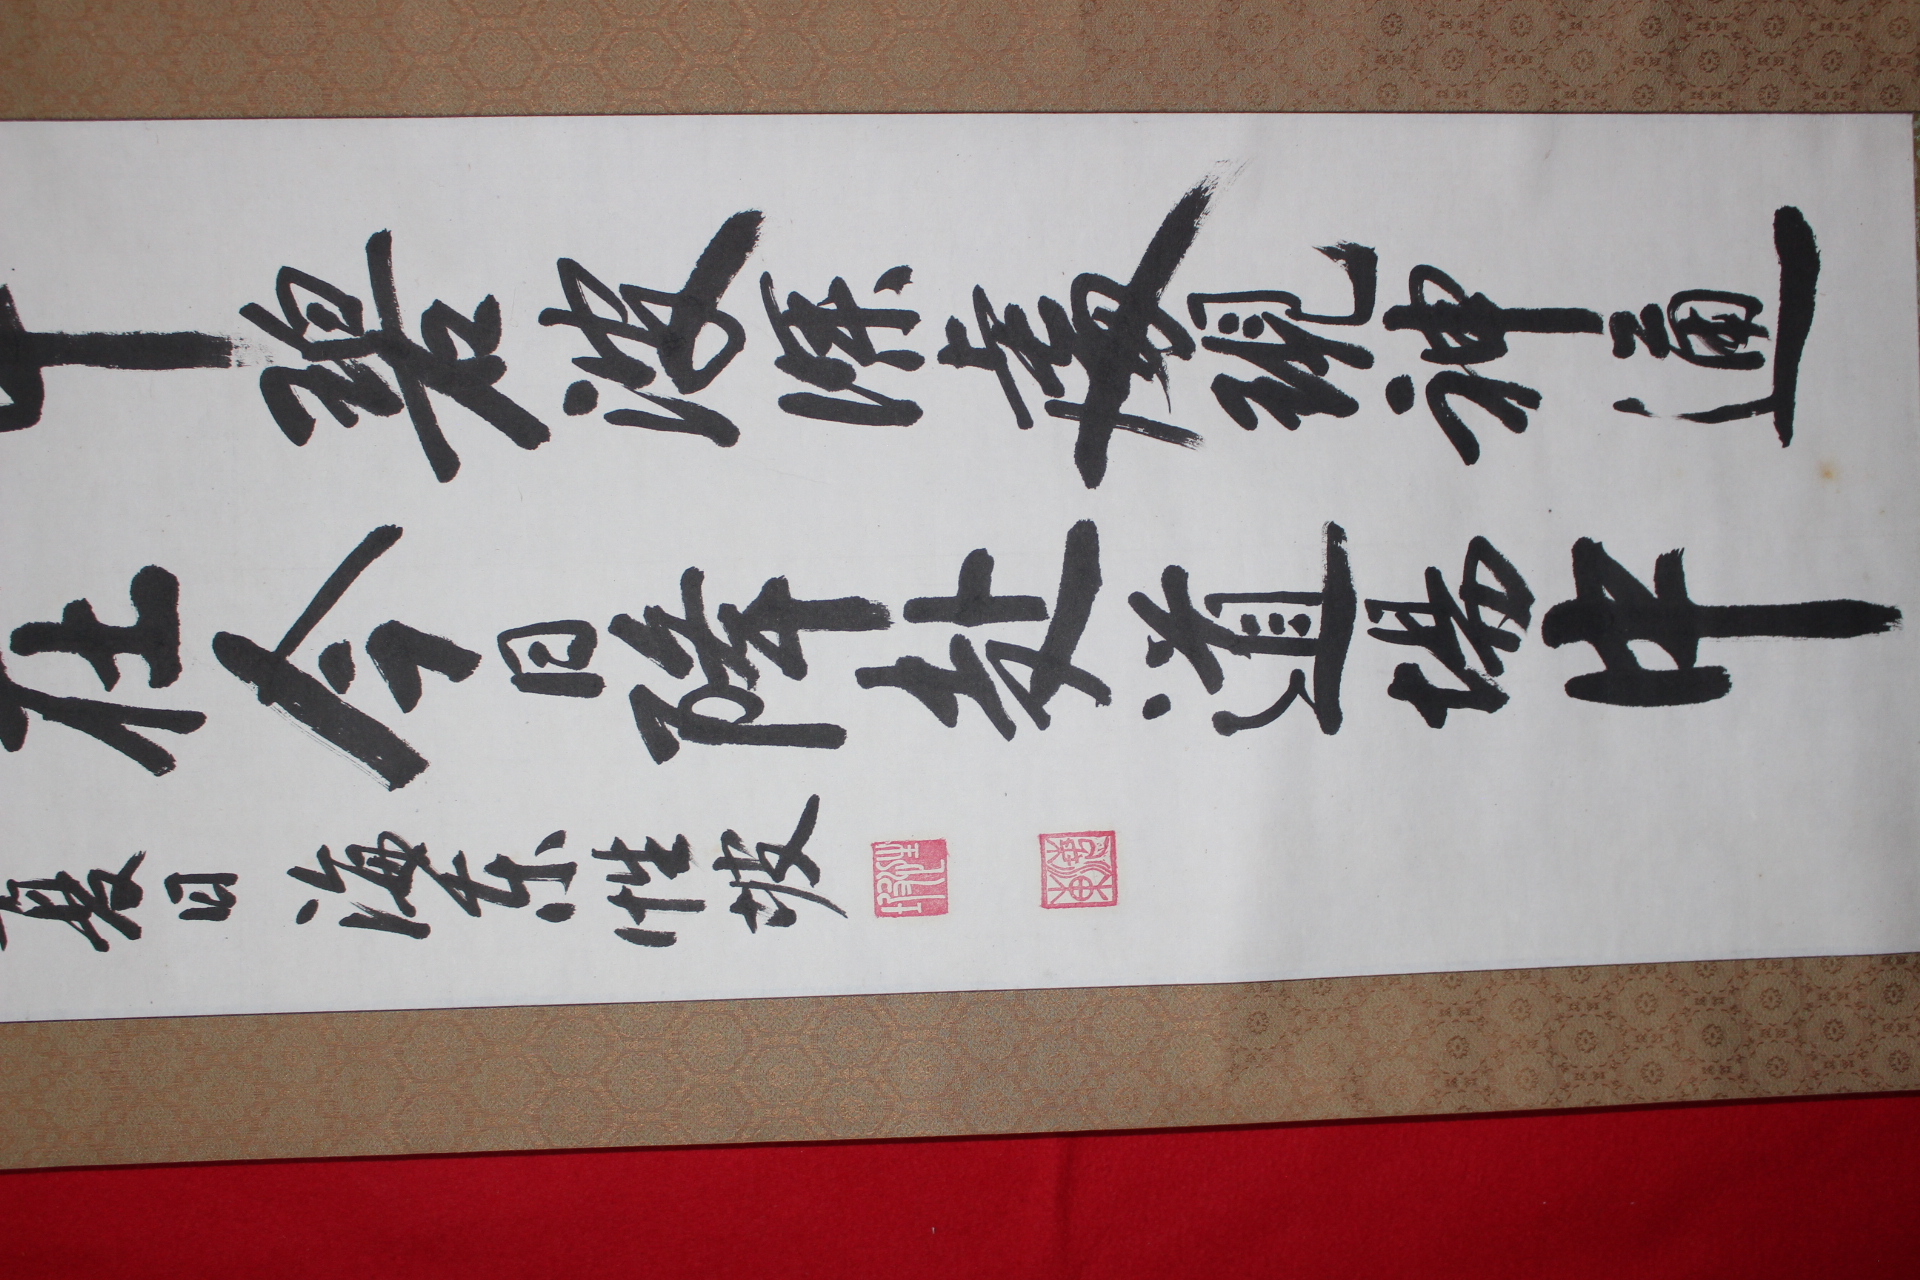 中碧波深處現神通
在今日降赴道場中
夏日 海東性坡
性坡
海東